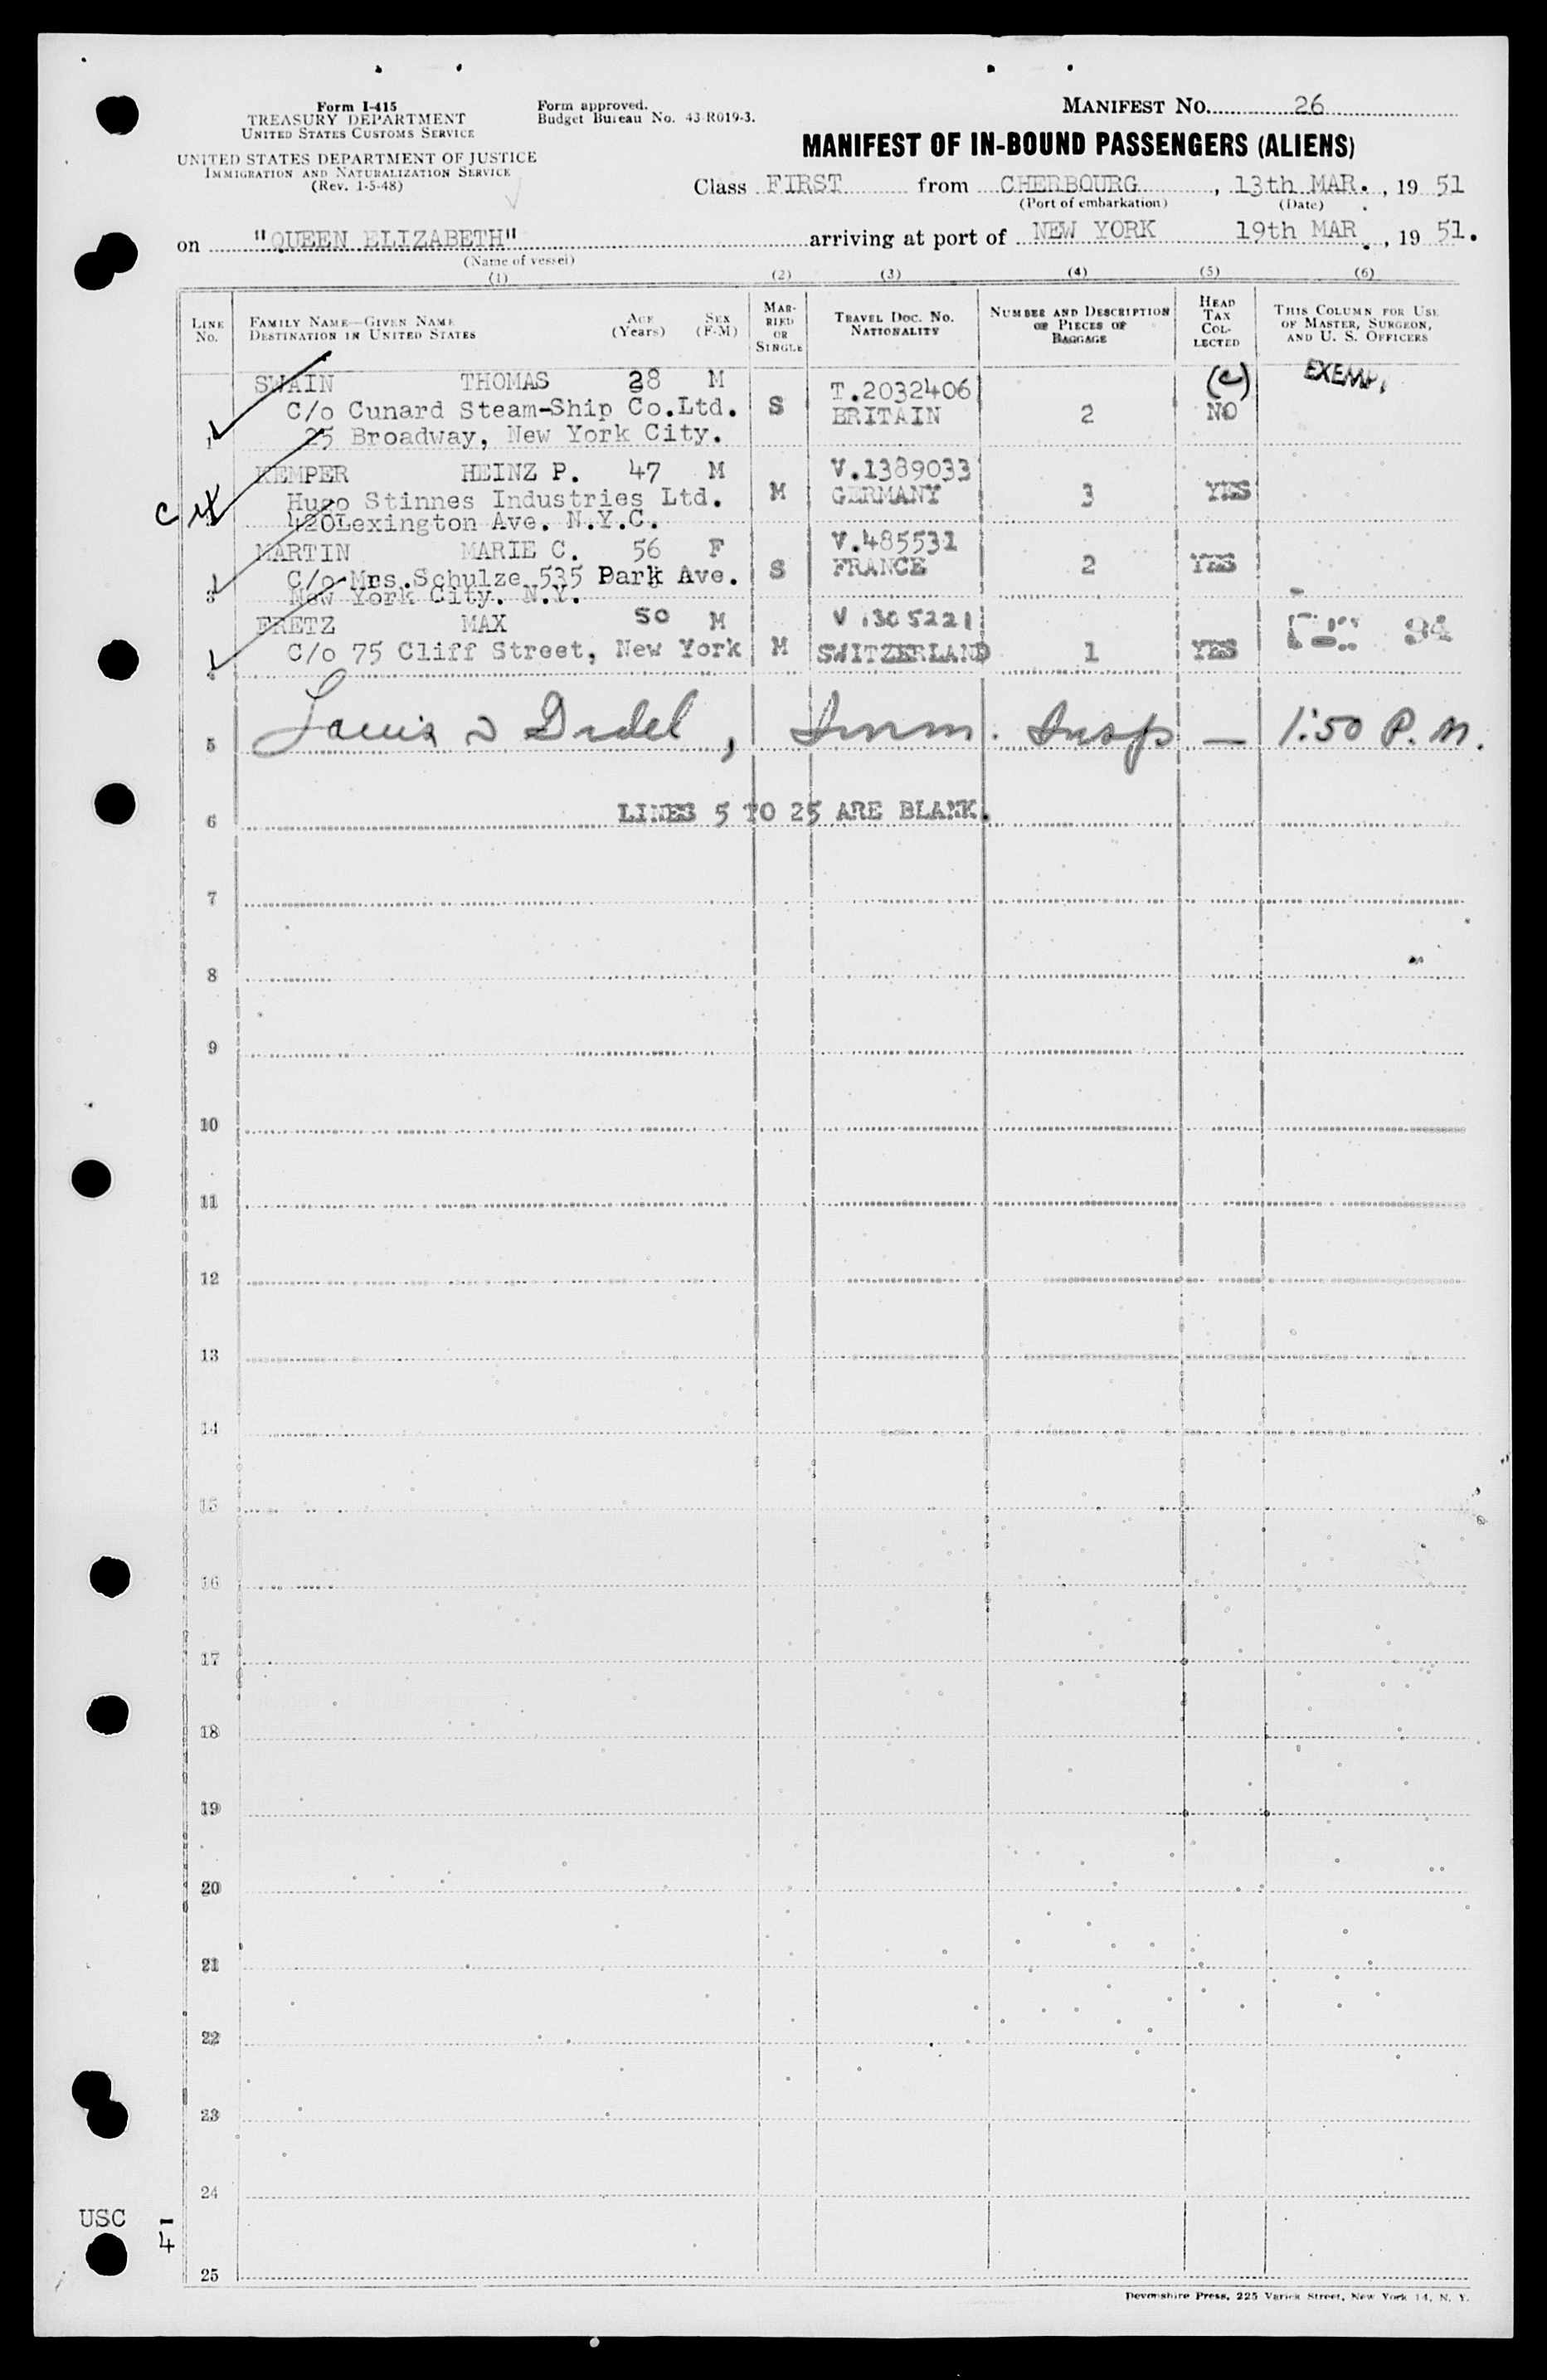 Form I-415
TREASURY DEPARTMENT
UNITED STATES CUSTOMS SERVICE
UNITED STATES DEPARTMENT OF JUSTICE
IMMIGRATION AND NATURALIZATION SERVICE
(Rev. 1-5-48)
Form approved.
Budget Bureau No. 43-R019-3.
MANIFEST NO. 26
MANIFEST OF IN-BOUND PASSENGERS (ALIENS)
Class FIRST from CHERBOURG, 13th MAR., 19 51
(Port of embarkation) (Date)
on "QUEEN ELIZABETH" arriving at port of NEW YORK 19th MAR., 19 51.
(Name of vessel)
(1) (2) (3) (4) (5) (6)
LINE No.
FAMILY NAME—GIVEN NAME
DESTINATION IN UNITED STATES
AGE (Years)
SEX (F-M)
MARRIED OR SINGLE
TRAVEL DOC. NO.
NATIONALITY
NUMBER AND DESCRIPTION OF PIECES OF BAGGAGE
HEAD TAX COLLECTED
THIS COLUMN FOR USE OF MASTER, SURGEON, AND U. S. OFFICERS
SWAIN THOMAS 28 M T.2032406 (c) EXEMP
C/o Cunard Steam-Ship Co.Ltd. S BRITAIN 2 NO
1 25 Broadway, New York City.
KEMPER HEINZ P. 47 M V.1389033
Hugo Stinnes Industries Ltd. M GERMANY 3 YES
420Lexington Ave. N.Y.C.
MARTIN MARIE C. 56 F V.485531
C/o Mrs.Schulze 535 Park Ave. S FRANCE 2 YES
3 New York City. N.Y.
FRETZ MAX 50 M V 1305221
C/o 75 Cliff Street, New York M SWITZERLAND 1 YES 94
4
5 Imm. Insp — 1:50 P.M.
6 LINES 5 TO 25 ARE BLANK.
7
8
9
10
11
12
13
14
15
16
17
18
19
20
21
22
23
24
25
USC 4
Devonshire Press, 225 Varick Street, New York 14, N. Y.